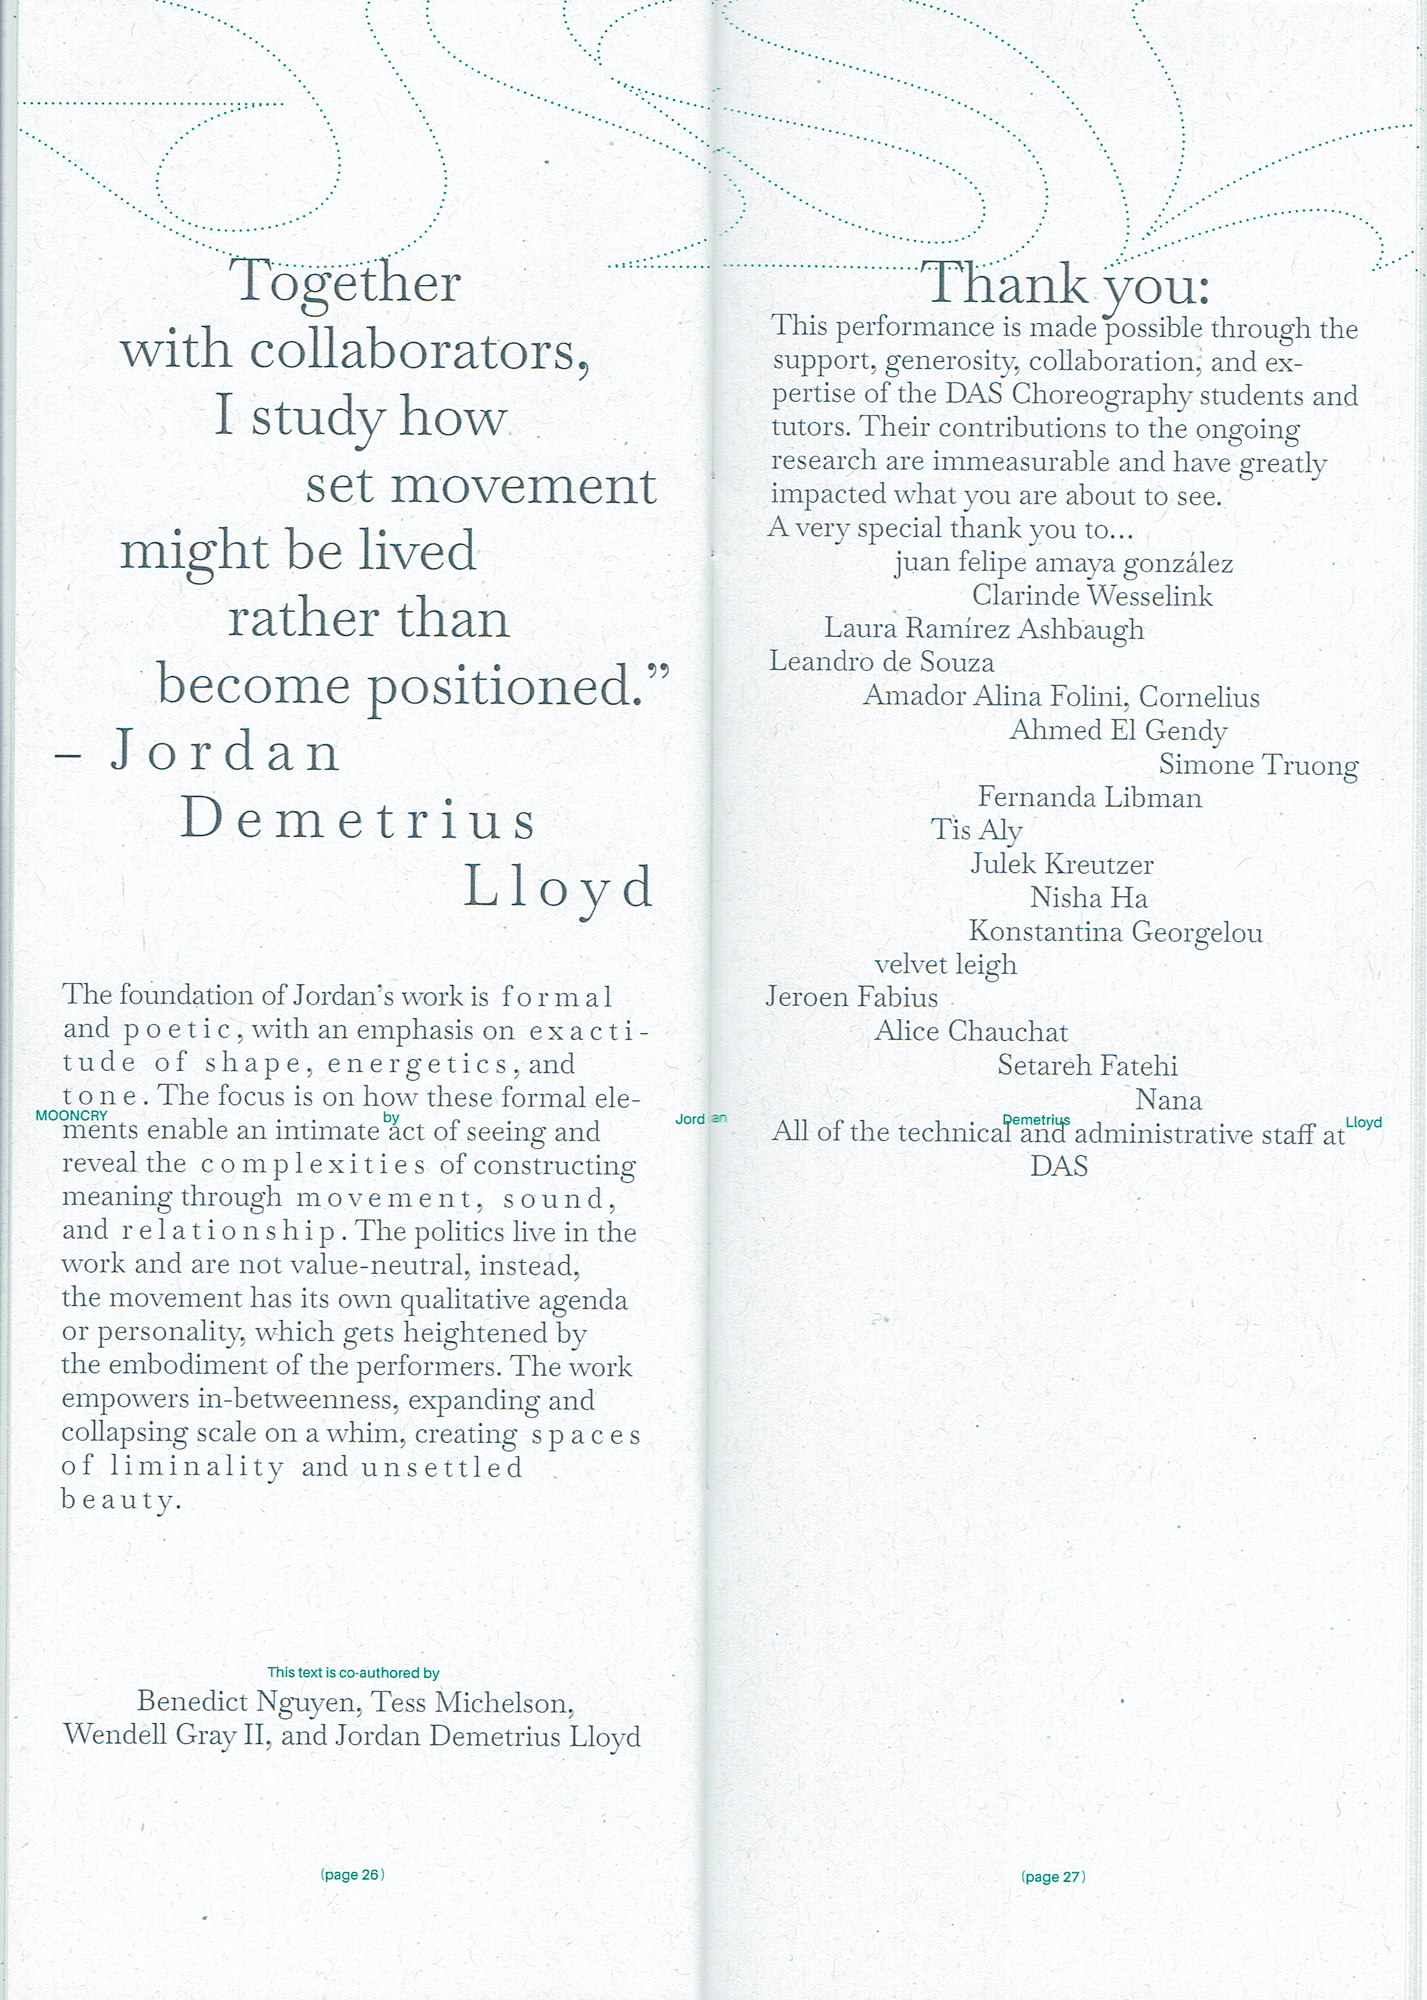 Together
with collaborators,
I study how
set movement
might be lived
rather than
become positioned.”
– Jordan
Demetrius
Lloyd
The foundation of Jordan’s work is formal
and poetic, with an emphasis on exacti-
tude of shape, energetics, and
tone. The focus is on how these formal ele-
ments enable an intimate act of seeing and
reveal the complexities of constructing
meaning through movement, sound,
and relationship. The politics live in the
work and are not value-neutral, instead,
the movement has its own qualitative agenda
or personality, which gets heightened by
the embodiment of the performers. The work
empowers in-betweenness, expanding and
collapsing scale on a whim, creating spaces
of liminality and unsettled
beauty.
This text is co-authored by
Benedict Nguyen, Tess Michelson,
Wendell Gray II, and Jordan Demetrius Lloyd
(page 26)
MOONCRY by Jordan Demetrius Lloyd
Thank you:
This performance is made possible through the
support, generosity, collaboration, and ex-
pertise of the DAS Choreography students and
tutors. Their contributions to the ongoing
research are immeasurable and have greatly
impacted what you are about to see.
A very special thank you to...
juan felipe amaya gonzález
Clarinde Wesselink
Laura Ramírez Ashbaugh
Leandro de Souza
Amador Alina Folini, Cornelius
Ahmed El Gendy
Simone Truong
Fernanda Libman
Tis Aly
Julek Kreutzer
Nisha Ha
Konstantina Georgelou
velvet leigh
Jeroen Fabius
Alice Chauchat
Setareh Fatehi
Nana
All of the technical and administrative staff at
DAS
(page 27)